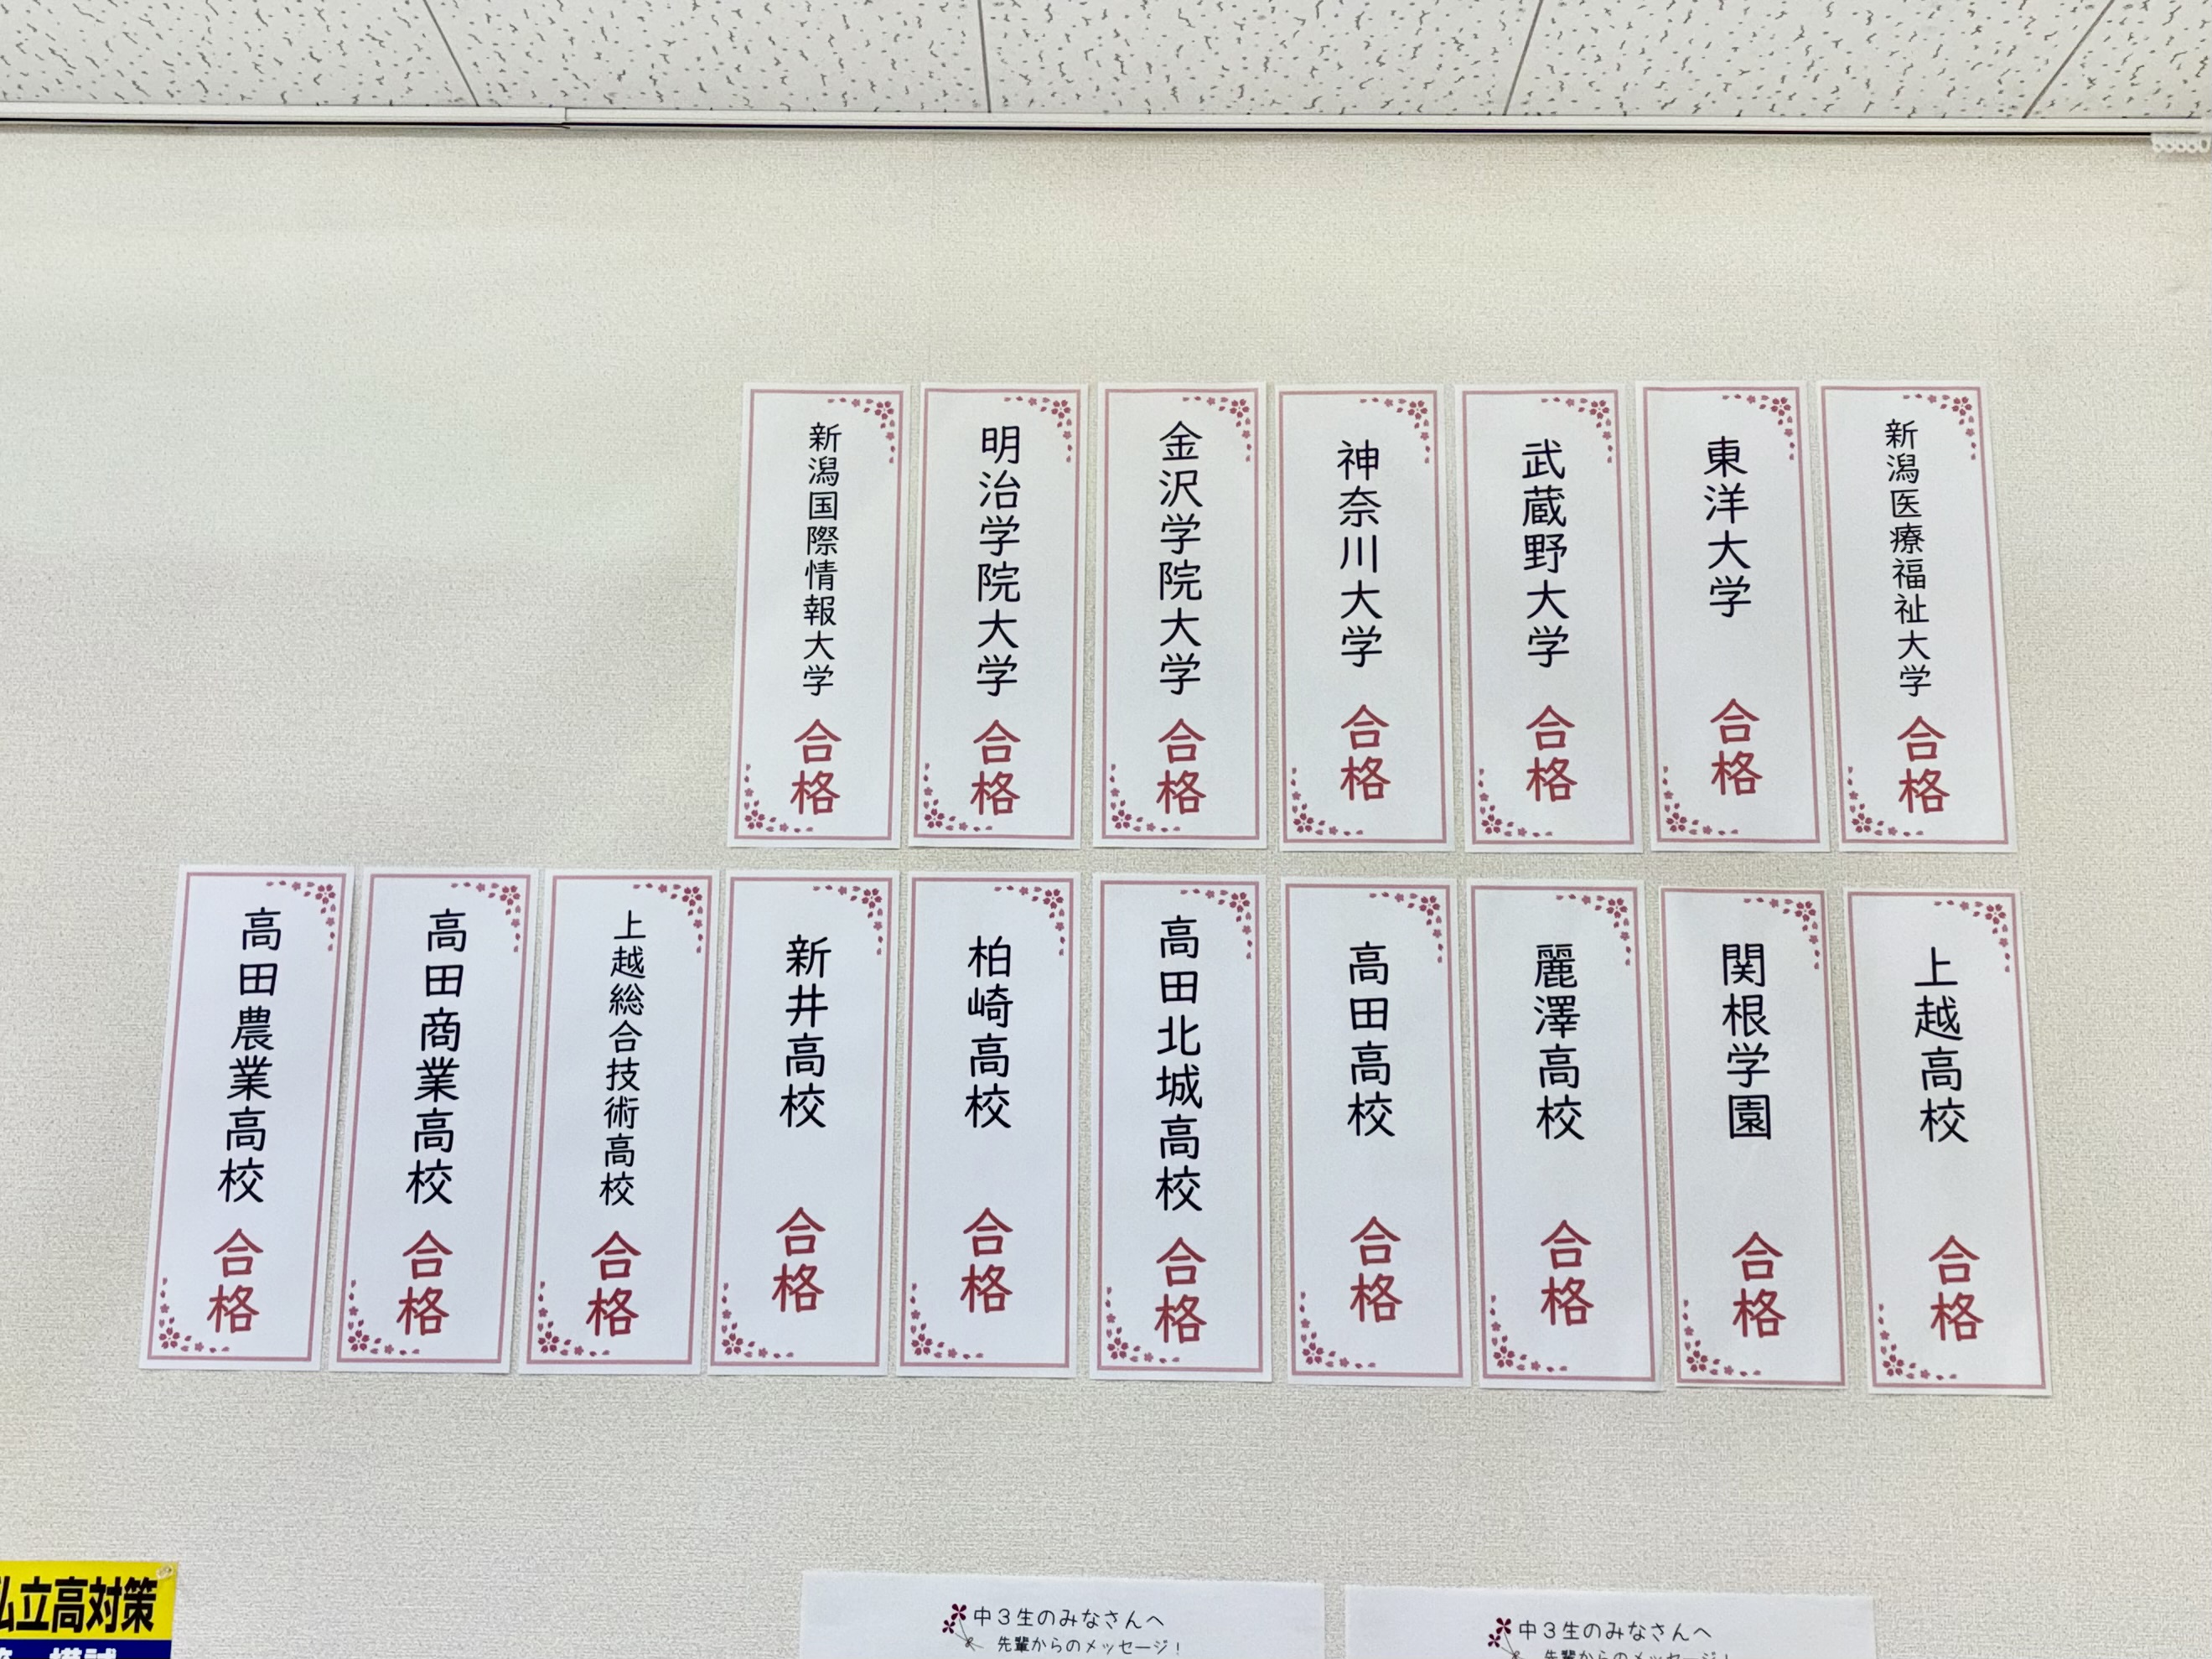 新潟医療福祉大学 合格
東洋大学 合格
武蔵野大学 合格
神奈川大学 合格
金沢学院大学 合格
明治学院大学 合格
新潟国際情報大学 合格
上越高校 合格
関根学園 合格
麗澤高校 合格
高田高校 合格
高田北城高校 合格
柏崎高校 合格
新井高校 合格
上越総合技術高校 合格
高田商業高校 合格
高田農業高校 合格
私立高対策
模試
中3生のみなさんへ
先輩からのメッセージ！
中3生のみなさんへ
先輩からのメッセージ！